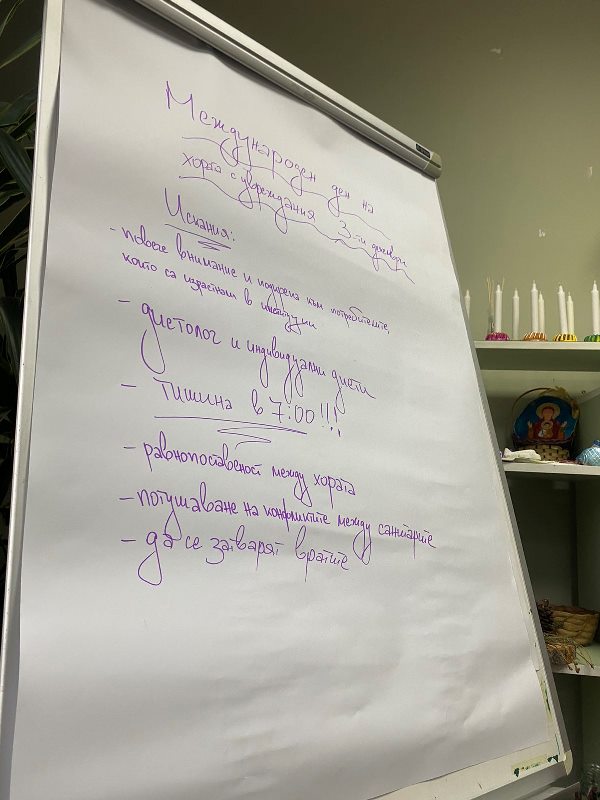 Международен ден на
хората с увреждания 3-ти декември
Искания:
- повече внимание и подкрепа към потребителите,
които са израстнали в институции
- диетолог и индивидуални диети
- Тишина в 7:00!!!
- равнопоставеност между хората
- потушаване на конфликтите между санитарите
- да се затварят вратите